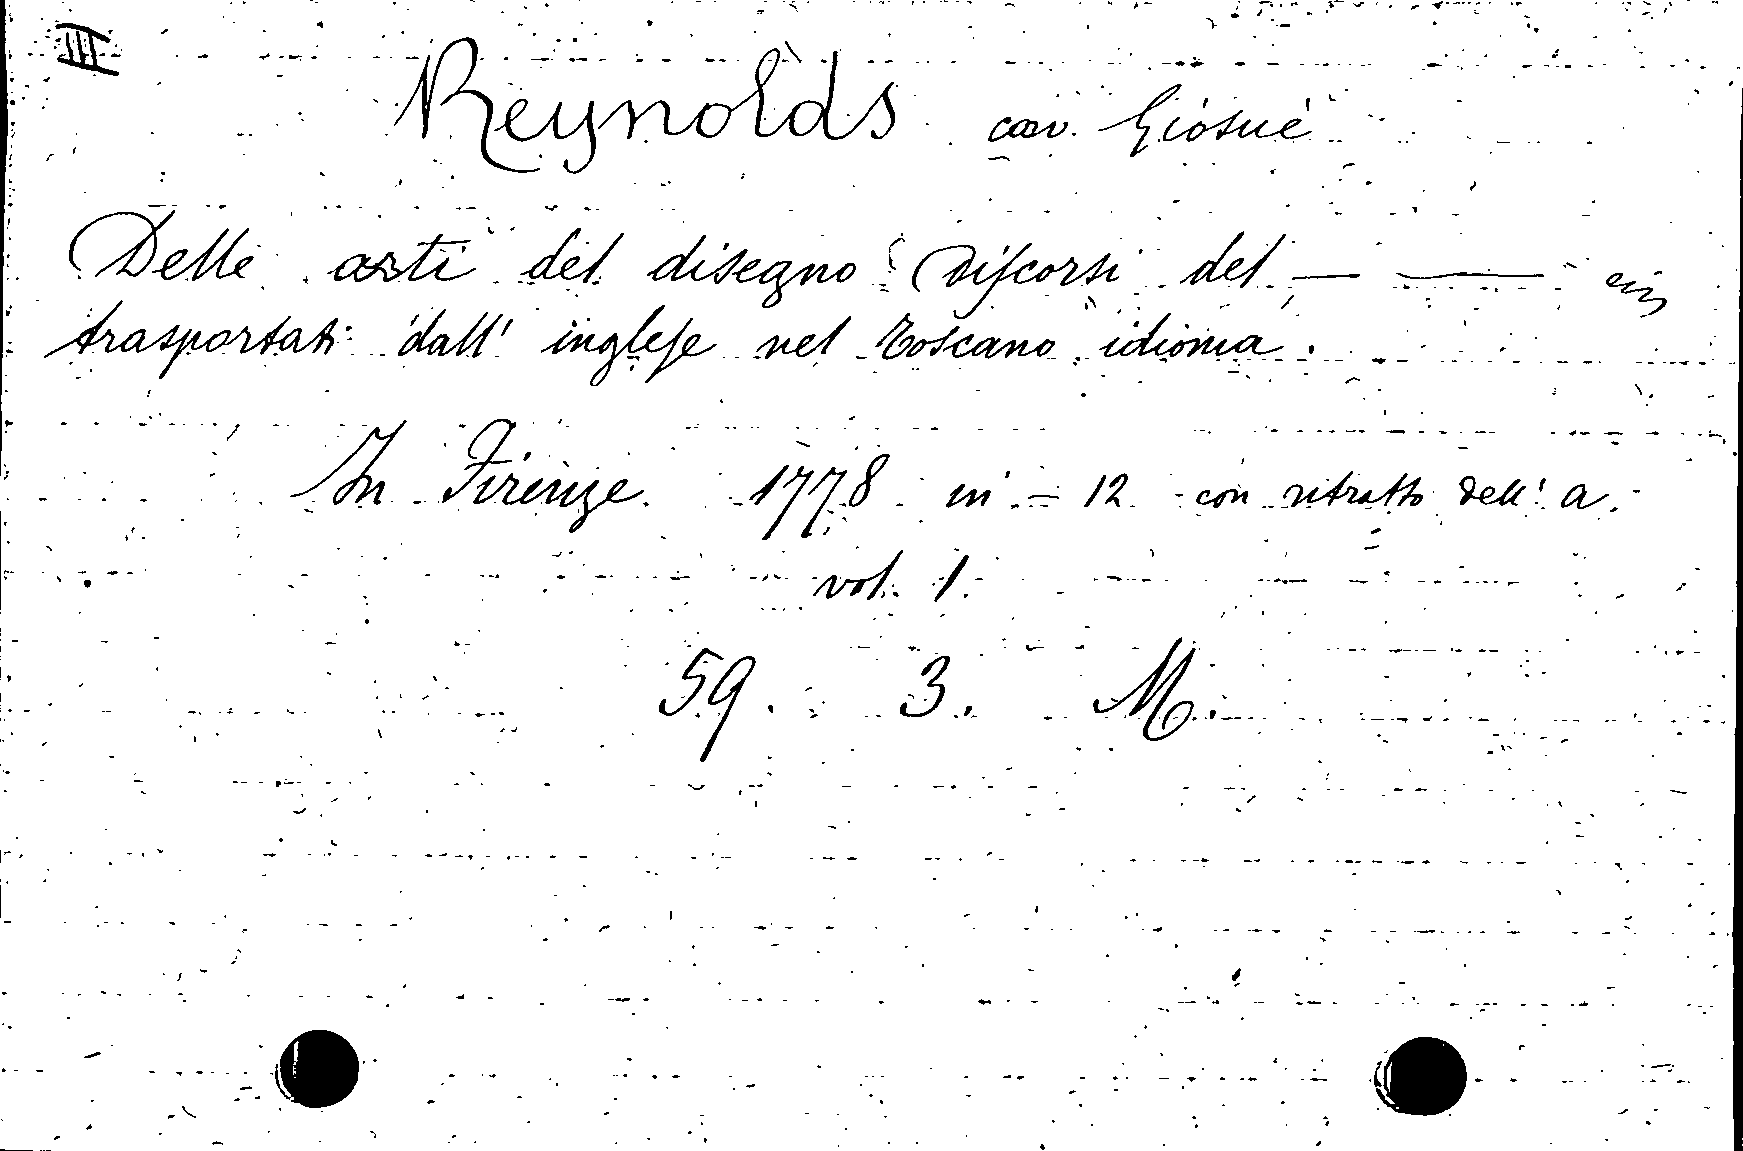 III
Reynolds cav. Giosuè
Delle arti del disegno Discorsi del — —
trasportati dall' inglese nel toscano idioma.
In Firenze. 1778 in - 12 con ritratto dell' a.
vol. 1.
59. 3. M.